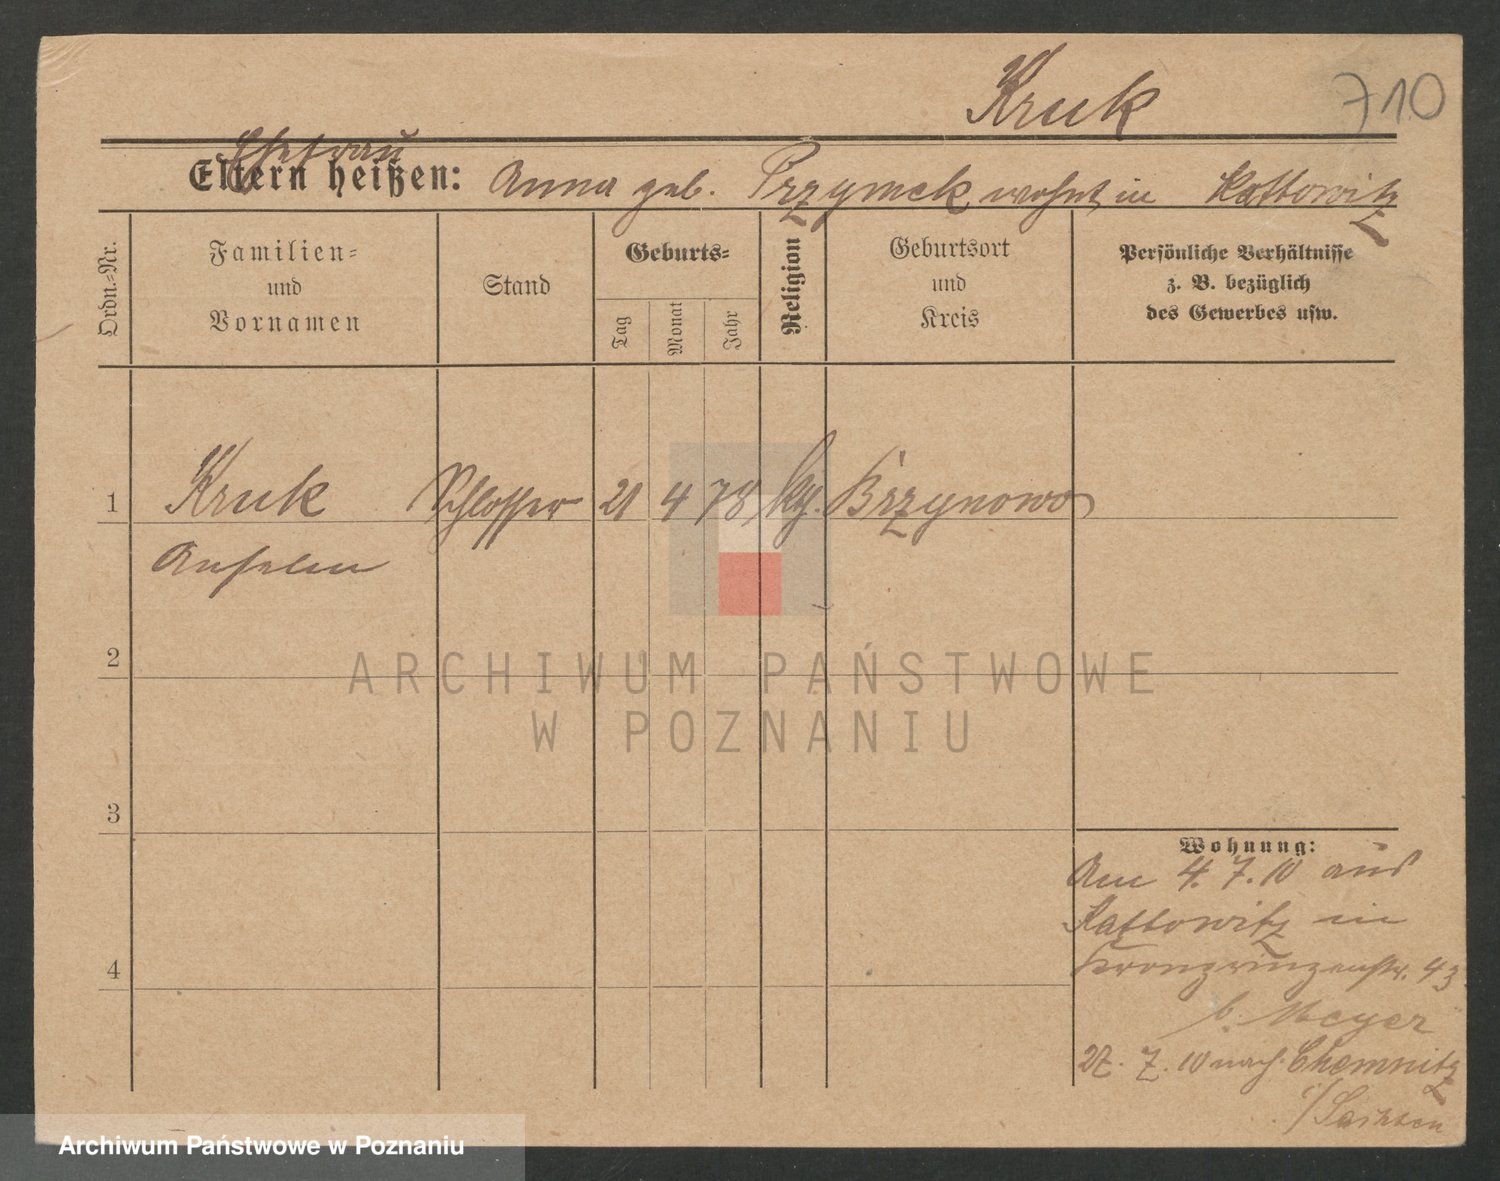 Kruk 710
Ehefrau
Eltern heißen: Anna geb. Przymek wohnt in Kattowitz
Ordn.-Nr.
Familien-
und
Vornamen
Stand
Geburts-
Tag
Monat
Jahr
Religion
Geburtsort
und
Kreis
Persönliche Verhältnisse
z. B. bezüglich
des Gewerbes usw.
1 Kruk Schlosser 21 4 78 Brzynowo
Anselm
2
ARCHIWUM PAŃSTWOWE
W POZNANIU
3
Wohnung:
Am 4. 7. 10 aus
Kattowitz in
Kronprinzenstr. 43
b. Meyer
27. 7. 10 nach Chemnitz
i/Sachsen
4
Archiwum Państwowe w Poznaniu